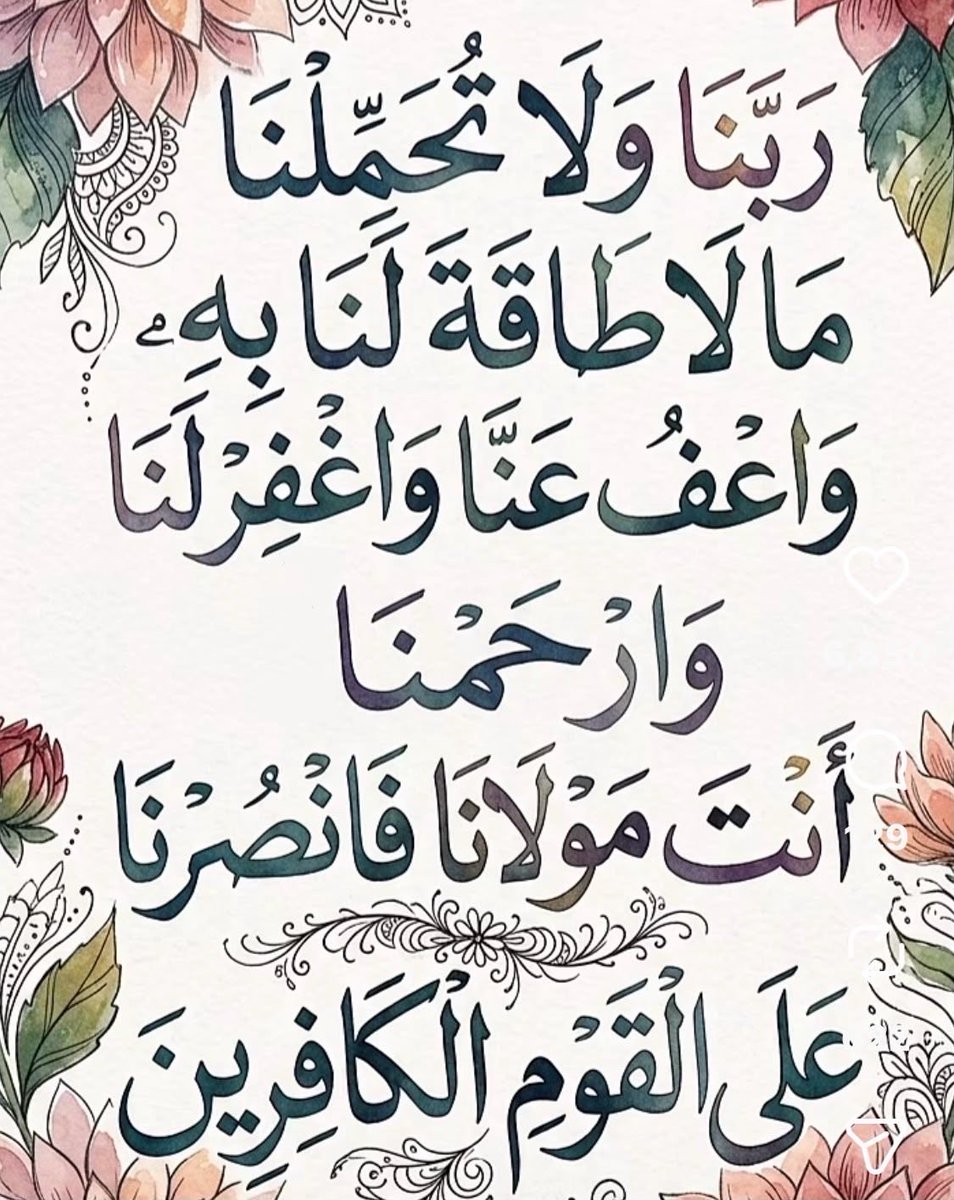 رَبَّنَا وَلَا تُحَمِّلْنَا
مَا لَا طَاقَةَ لَنَا بِهِۦ
وَاعْفُ عَنَّا وَاغْفِرْ لَنَا
وَارْحَمْنَا
أَنْتَ مَوْلَانَا فَانْصُرْنَا
عَلَى الْقَوْمِ الْكَافِرِينَ